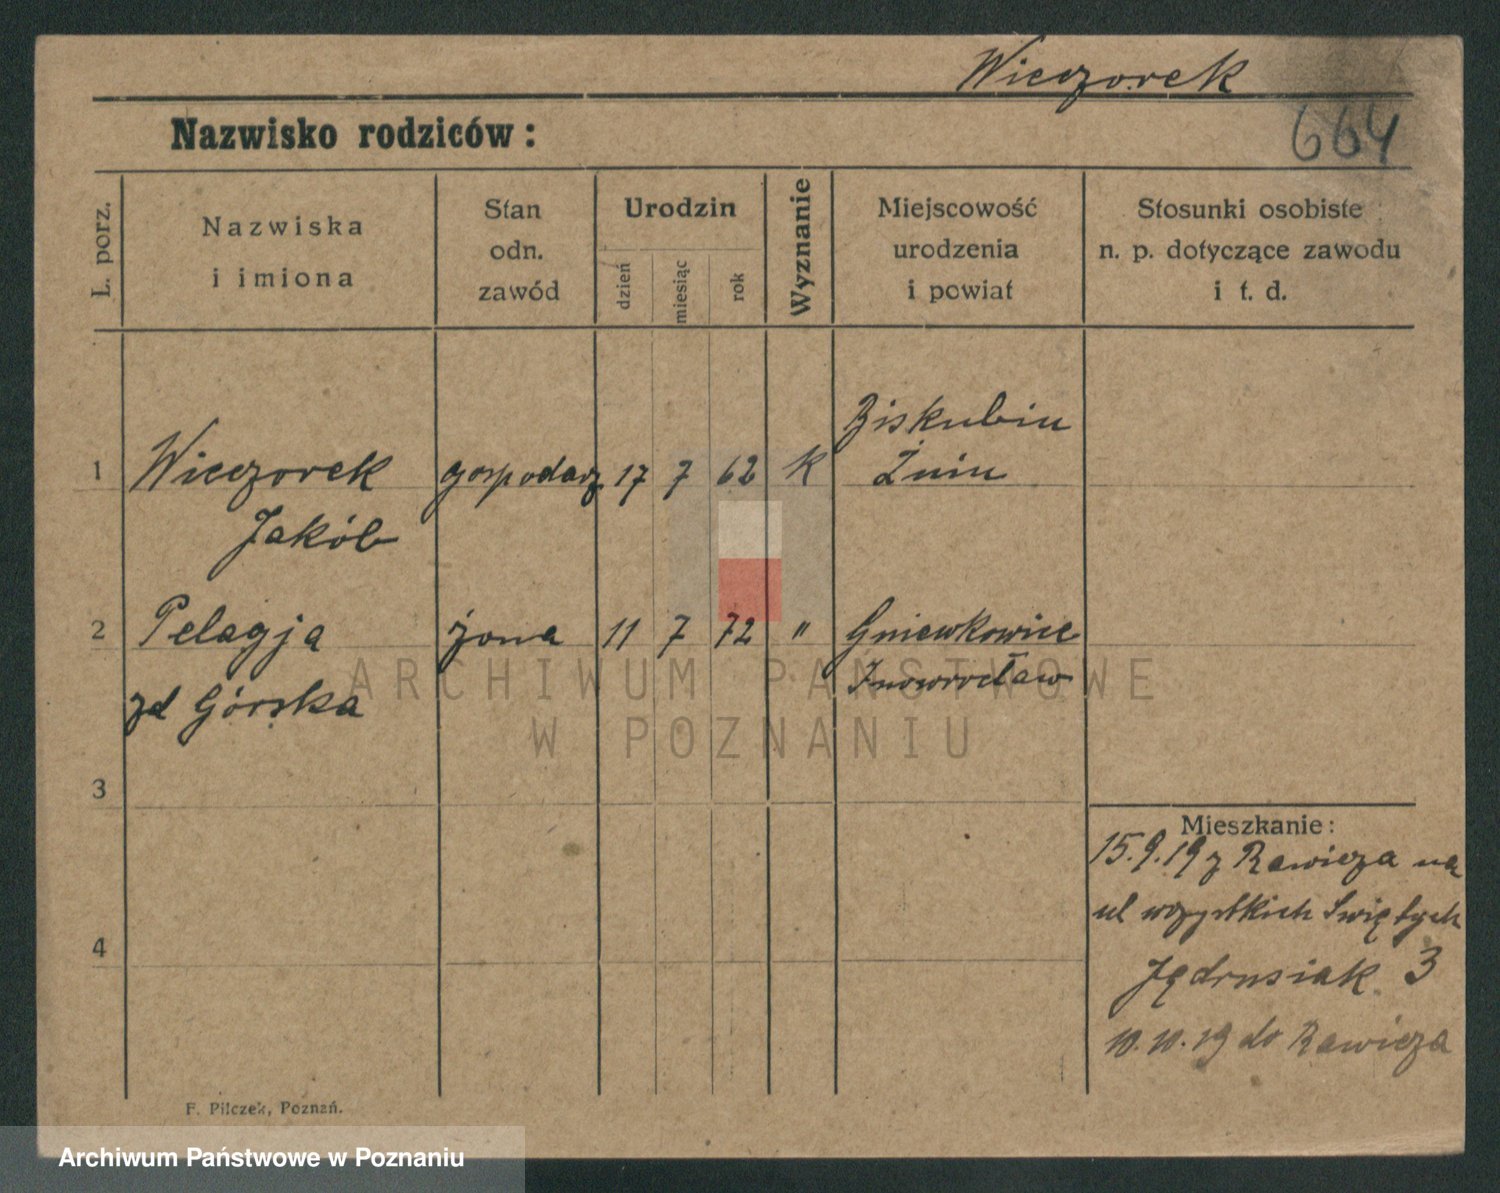 Wieczorek
Nazwisko rodziców:
664
L. porz.
Nazwiska
i imiona
Stan
odn.
zawód
Urodzin
dzień
miesiąc
rok
Wyznanie
Miejscowość
urodzenia
i powiat
Stosunki osobiste
n. p. dotyczące zawodu
i t. d.
1 Wieczorek gospodarz 17 7 62 K Biskubin
Żnin
Jakób
2 Pelagja żona 11 7 72 " Gniewkowice
Inowrocław
zd Górska
3
4
Mieszkanie:
15.9.19 z Rawicza na
ul wszystkich Świętych
Jędrusiak 3
10.10.19 do Rawicza
F. Pilczek, Poznań.
ARCHIWUM PAŃSTWOWE
W POZNANIU
Archiwum Państwowe w Poznaniu